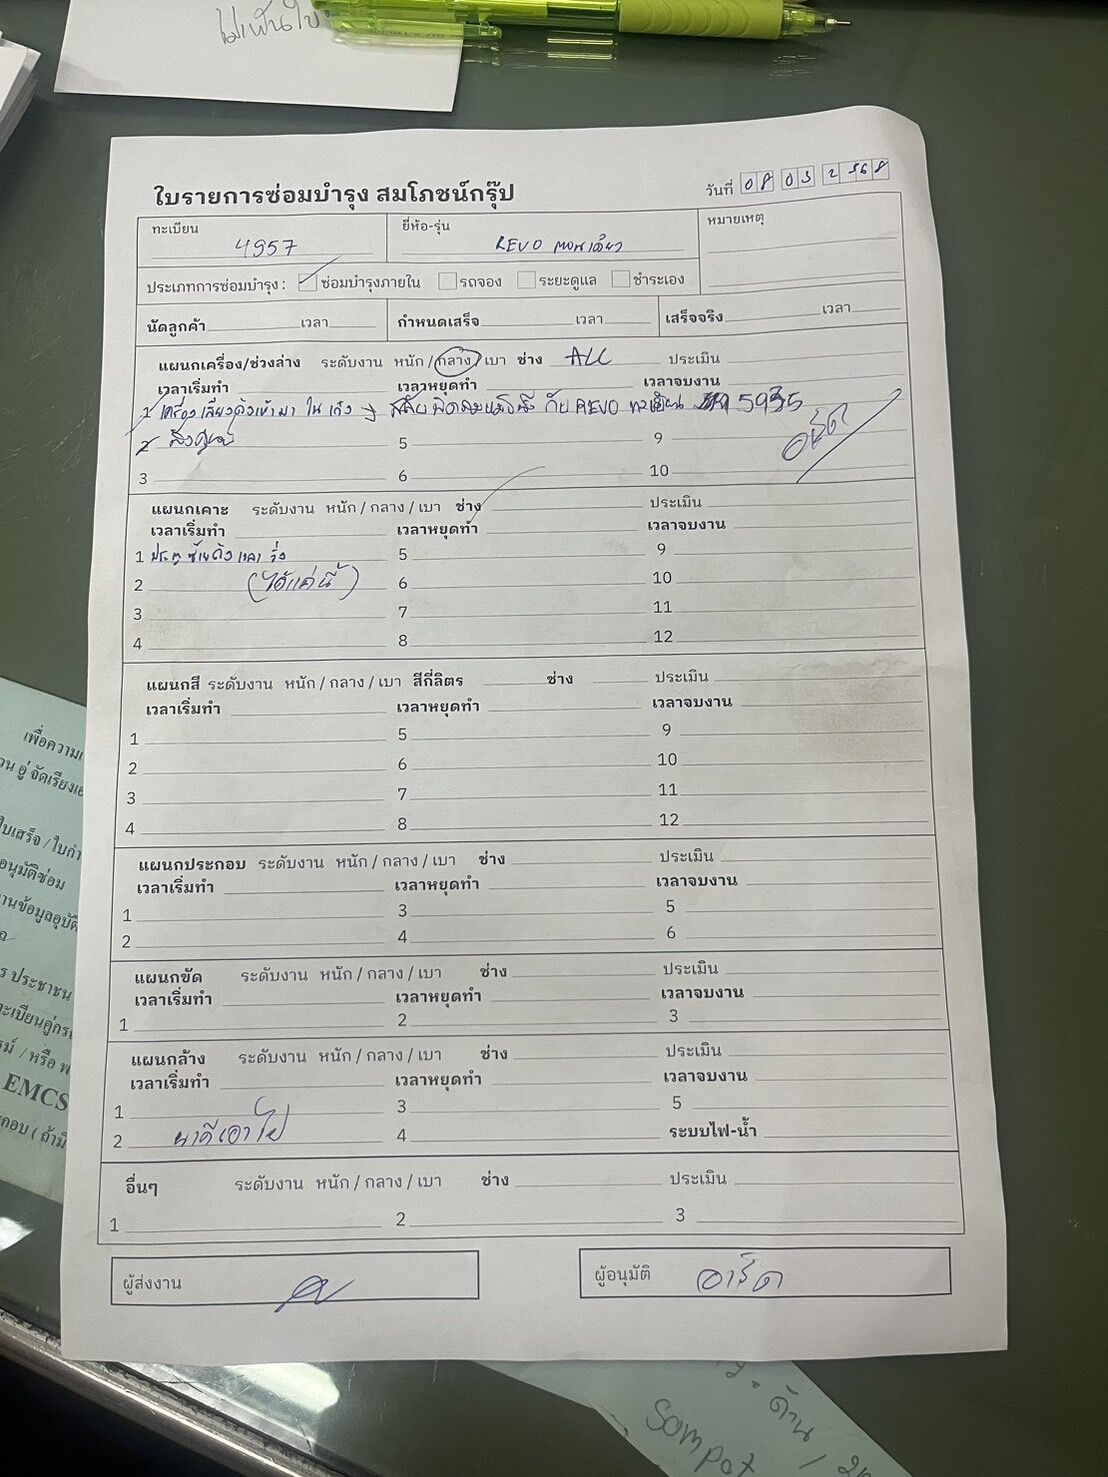 ไม่เป็นใบ
ใบรายการซ่อมบำรุง สมโภชน์กรุ๊ป
วันที่ 08 03 2568
ทะเบียน 4957
ยี่ห้อ-รุ่น REVO ตอนเดียว
หมายเหตุ
ประเภทการซ่อมบำรุง : ซ่อมบำรุงภายใน รถจอง ระยะดูแล ชำระเอง
นัดลูกค้า เวลา กำหนดเสร็จ เวลา เสร็จจริง เวลา
แผนกเครื่อง/ช่วงล่าง ระดับงาน หนัก / กลาง / เบา ช่าง ALL ประเมิน
เวลาเริ่มทำ เวลาหยุดทำ เวลาจบงาน
1 เครื่องเสียงดังเข้ามาใน เก๋ง → กับ REVO ทะเบียน 5935
2 5 9
อาร์ต
3 6 10
แผนกเคาะ ระดับงาน หนัก / กลาง / เบา ช่าง ประเมิน
เวลาเริ่มทำ เวลาหยุดทำ เวลาจบงาน
1 ประตูซ้ายดังเวลาวิ่ง 5 9
2 (ได้แค่นี้) 6 10
3 7 11
4 8 12
แผนกสี ระดับงาน หนัก / กลาง / เบา สีกี่ลิตร ช่าง ประเมิน
เวลาเริ่มทำ เวลาหยุดทำ เวลาจบงาน
1 5 9
2 6 10
3 7 11
4 8 12
แผนกประกอบ ระดับงาน หนัก / กลาง / เบา ช่าง ประเมิน
เวลาเริ่มทำ เวลาหยุดทำ เวลาจบงาน
1 3 5
2 4 6
แผนกขัด ระดับงาน หนัก / กลาง / เบา ช่าง ประเมิน
เวลาเริ่มทำ เวลาหยุดทำ เวลาจบงาน
1 2 3
แผนกล้าง ระดับงาน หนัก / กลาง / เบา ช่าง ประเมิน
เวลาเริ่มทำ เวลาหยุดทำ เวลาจบงาน
1 3 5
2 4 ระบบไฟ-น้ำ
อื่นๆ ระดับงาน หนัก / กลาง / เบา ช่าง ประเมิน
1 2 3
ผู้ส่งงาน
ผู้อนุมัติ อาร์ต
เพื่อความ
อู่ จัดเรียง
ใบเสร็จ / ใบกำ
อนุมัติซ่อม
านข้อมูลอุบัติ
ร ประชาชน
ะเบียนคู่กร
/ หรือ พ
EMCS
กอบ ( ถ้ามี
ด้าน /
Sompot